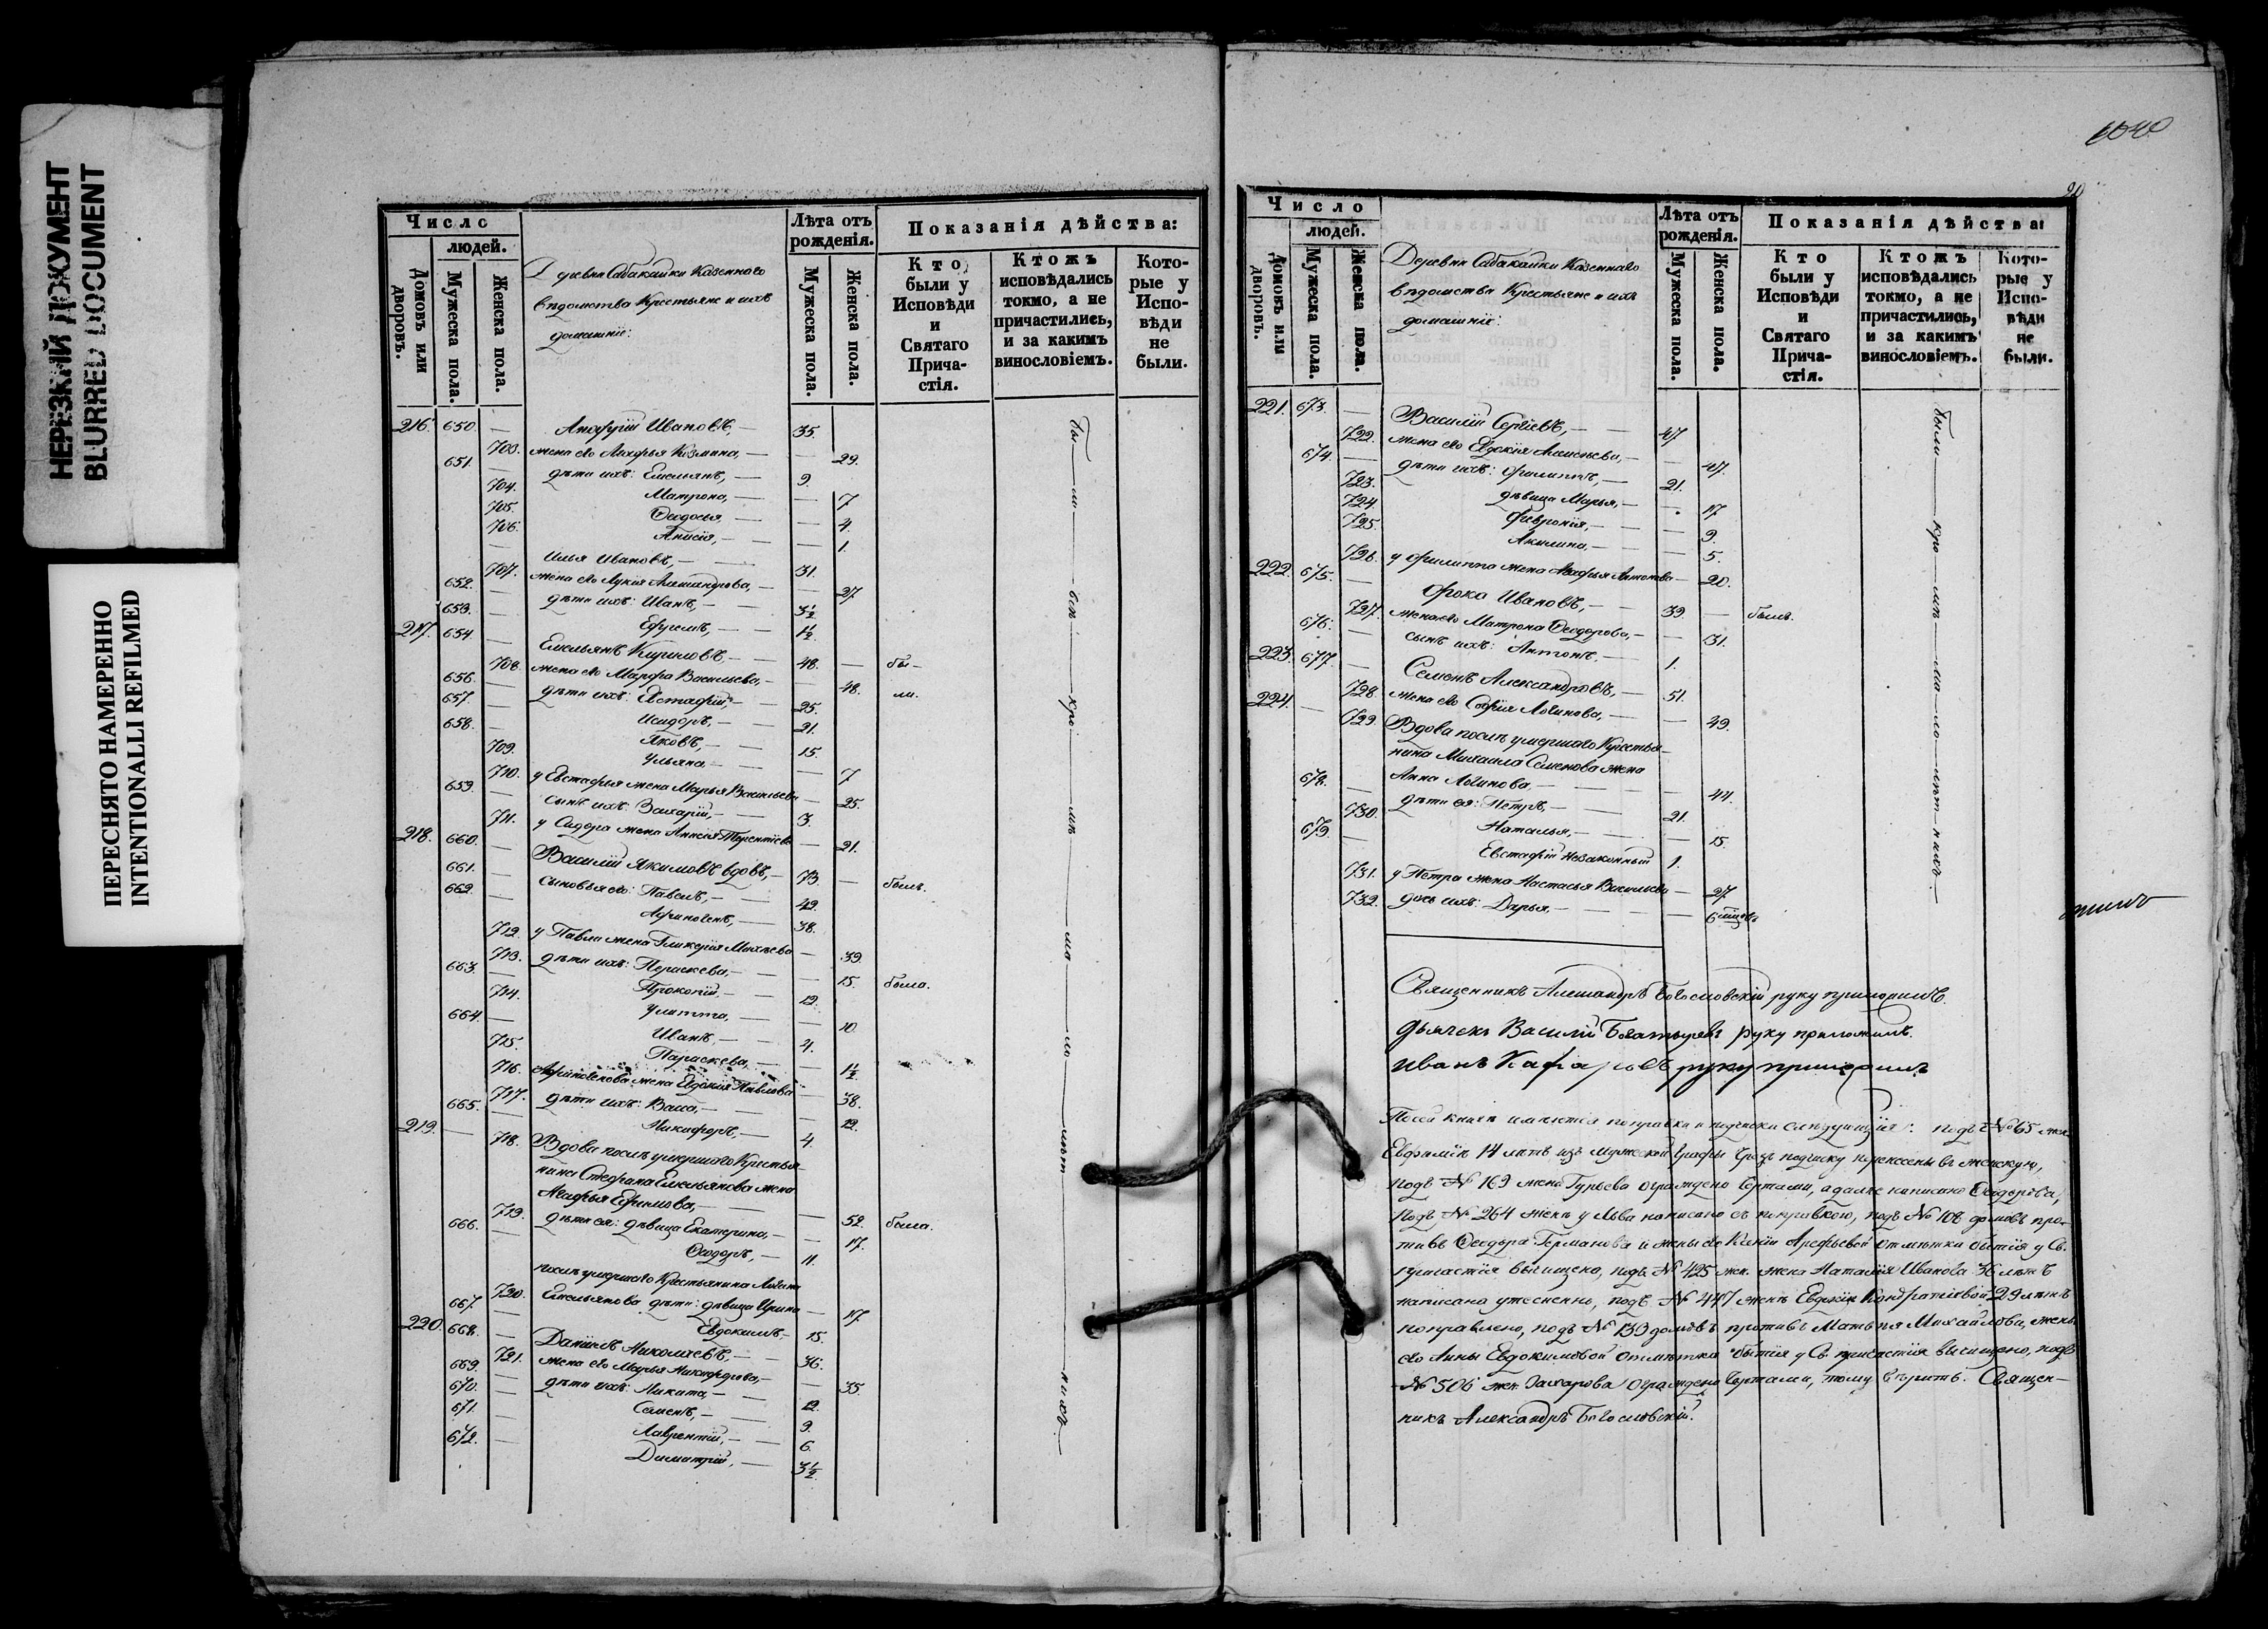 НЕРЕЗКИЙ ДОКУМЕНТ
BLURRED DOCUMENT
ПЕРЕСНЯТО НАМЕРЕННО
INTENTIONALLI REFILMED
Число
людей.
Домовъ или дворовъ.
Мужеска пола.
Женска пола.
Деревни Сабакайки Казеннаго
вѣдомства Крестьяне и ихъ
домашніе:
Лѣта отъ рожденія.
Мужеска пола.
Женска пола.
Показанія дѣйства:
Кто были у Исповѣди и Святаго Причастія.
Ктожъ исповѣдались токмо, а не причастились, и за какимъ винословіемъ.
Которые у Исповѣди не были.
216. 650. — Иванов̾ъ, — 35.
703. жена его Агафья Козмина, — 29.
651. — дѣти ихъ: Емельянъ, — 9.
704. Матрона, — 7
705. Ѳеодосья — 4.
706. Анисія, — 1.
— Илья Ивановъ, — 31.
707. жена его Лукія Александрова, — 27
652. — дѣти ихъ: Иванъ, — 3½
653. — Ефремъ, — 1½.
217. 654. — Емельянъ Кириловъ, — 48. — бы-
708. жена его Марфа Васильева, — 48. ли.
656. — дѣти ихъ: Евстафій, — 25.
657. — Исидоръ, — 21.
658. — Яковъ, — 15.
709. Ульяна — 7
710. у Евстафья жена Марья Васильева — 25.
659. — сынъ ихъ: Захарій, — 3.
711. у Сидора жена Анисія Терентіева — 21.
218. 660. — Василій Якимовъ вдовъ, — 73. — былъ.
661. — сыновья его: Павелъ, — 42.
662. — Афиногенъ, — 38.
712. у Павла жена Гликерія Михѣева — 39
713. дѣти ихъ: Параскева, — 15. была.
663. — Прокопій, — 12.
714. Улитта, — 10
664. — Иванъ, — 4.
715. Параскева, — 1½.
716. Афиногенова жена Евдокія Павлова — 38.
717. дѣти ихъ: Васса, — 12.
665. — Никифоръ, — 4
219. — 718. Вдова послѣ умершаго Крестья-
нина Стефана Емельянова жена
Агафья Ефимова, — 52. была.
719. дѣти ея: дѣвица Екатерина, — 17.
666. — Ѳеодоръ, — 11.
послѣ умершаго Крестьянина
720. Емельянова дѣти: дѣвица Ирина — 17.
667. — Евдокимъ, — 15.
220. 668. — Даніилъ Николаевъ, — 36.
721. жена его Марья Никифорова, — 35.
669. — дѣти ихъ: Никита, — 12.
670. — Семенъ, — 9.
671. — Лаврентій, — 6.
672. — Димитрій, — 3½.
бы — ли — всѣ — кро — мѣ — ма — ло — лѣт — нихъ.
90
Число
людей.
Домовъ или дворовъ.
Мужеска пола.
Женска пола.
Деревни Сабакайки Казеннаго
вѣдомства Крестьяне и ихъ
домашніе:
Лѣта отъ рожденія.
Мужеска пола.
Женска пола.
Показанія дѣйства:
Кто были у Исповѣди и Святаго Причастія.
Ктожъ исповѣдались токмо, а не причастились, и за какимъ винословіемъ.
Которые у Исповѣди не были.
221. 673. — Василій Сергіевъ, — 47
722. жена его Евдокія Алексѣева, — 47.
674. — дѣти ихъ: Филиппъ, — 21.
723. дѣвица Марья, — 17
724. Февронія, — 9.
725. Акилина, — 5.
726. у Филиппа жена Агафья Антонова — 20.
222. 675. — Фока Ивановъ, — 39. — былъ.
727. жена его Матрона Ѳеодорова, — 31.
676. — сынъ ихъ: Антонъ, — 1.
223. 677. — Семенъ Александровъ, — 51.
728. жена его Софія Логинова, — 49.
224. — 729. Вдова послѣ умершаго Крестья-
нина Михаила Семенова жена
Анна Логинова — 44.
678. — дѣти ея: Петръ, — 21.
730. Наталья, — 15.
679. — Евстафій незаконный 1.
731. у Петра жена Настасья Васильева — 27
732. дочь ихъ: Дарья, — 6 мѣсяц.
были — кро — мѣ — ма — ло — лѣт — нихъ.
Священникъ Александръ Богословскій руку приложилъ.
Дьячекъ Василій руку приложилъ.
Иванъ Кафаровъ руку приложилъ
По сей книгѣ имѣются поправки и подчистки слѣдующія: подъ № 65 жен.
Евфимія 14 лѣтъ изъ мужеской графы чрезъ подчистку перенесены въ женскую,
подъ № 169 жена Гурьева ограждено чертами, а далѣе написано Ѳеодорова,
подъ № 264 жен. у Льва написано съ поправкою, подъ № 108 домовъ про-
тивъ Ѳеодора Германова и жены его Ксеніи Арефьевой отмѣтки бытія у Св.
причастія вычищено, подъ № 425 жен. жена Наталія Иванова 36 лѣтъ
написано утесненно, подъ № 447 жен. Евдокія Кондратіевой 29 лѣтъ
поправлено, подъ № 139 домовъ противъ Матвѣя Михайлова, жены
его Анны Евдокимовой отмѣтка бытія у Св. причастія вычищено, подъ
№ 506 жен. Захарова ограждено чертами, тому вѣрить. Священ-
никъ Александръ Богословскій.